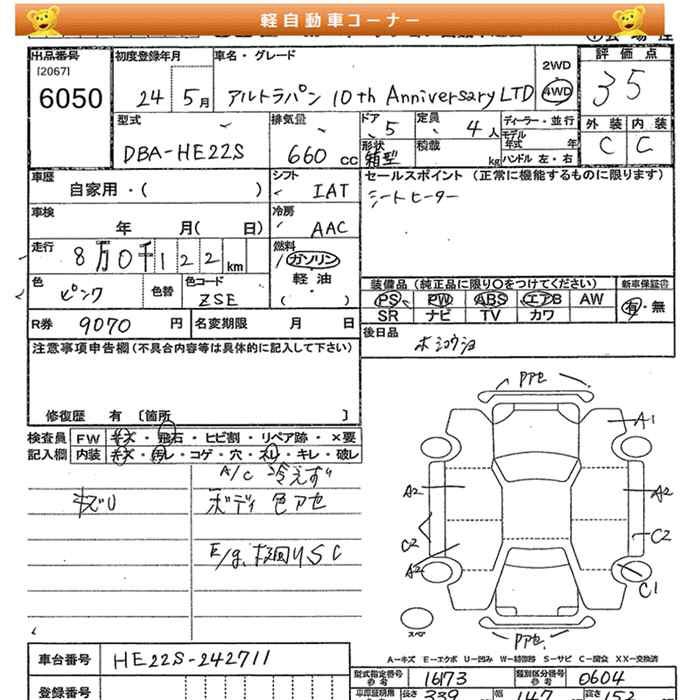 軽自動車コーナー
出品番号
[2067]
6050
初度登録年月
24 5月
車名・グレード
アルトラパン 10th Anniversary LTD
2WD
4WD
評価点
35
外装 内装
C C
型式
DBA-HE22S
排気量
660 cc
ドア 5
形状
箱型
定員
4人
積載
kg
ディーラー・並行
モデル
年式 年
ハンドル 左・右
車歴
自家用・( )
シフト
IAT
セールスポイント (正常に機能するものに限ります)
シートヒーター
車検
年 月( 日)
冷房
AAC
走行
8万0千122km
燃料
ガソリン
軽油
( )
色
ピンク
色替
色コード
ZSE
装備品 (純正品に限り○をつけてください)
PS PW ABS エアB AW
SR ナビ TV カワ
新車保証書
有・無
R券 9070 円
名変期限 月 日
後日品
ホショウショ
注意事項申告欄(不具合内容等は具体的に記入して下さい)
修復歴 有 〔箇所 〕
検査員
記入欄
FW キズ・飛石・ヒビ割・リペア跡・×要
内装 キズ・汚レ・コゲ・穴・スレ・キレ・破レ
A/C 冷えず
キズU
ボディ 色アセ
アセ
A1
A2
A2
C2
C2
A2
C1
スペア
アセ
A−キズ E−エクボ U−凹み W−補修跡 S−サビ C−腐食 XX−交換済
車台番号 HE22S-242711
型式指定番号
参考
16173
類別区分番号
参考
0604
登録番号
長さ 339
幅 147
高さ 152